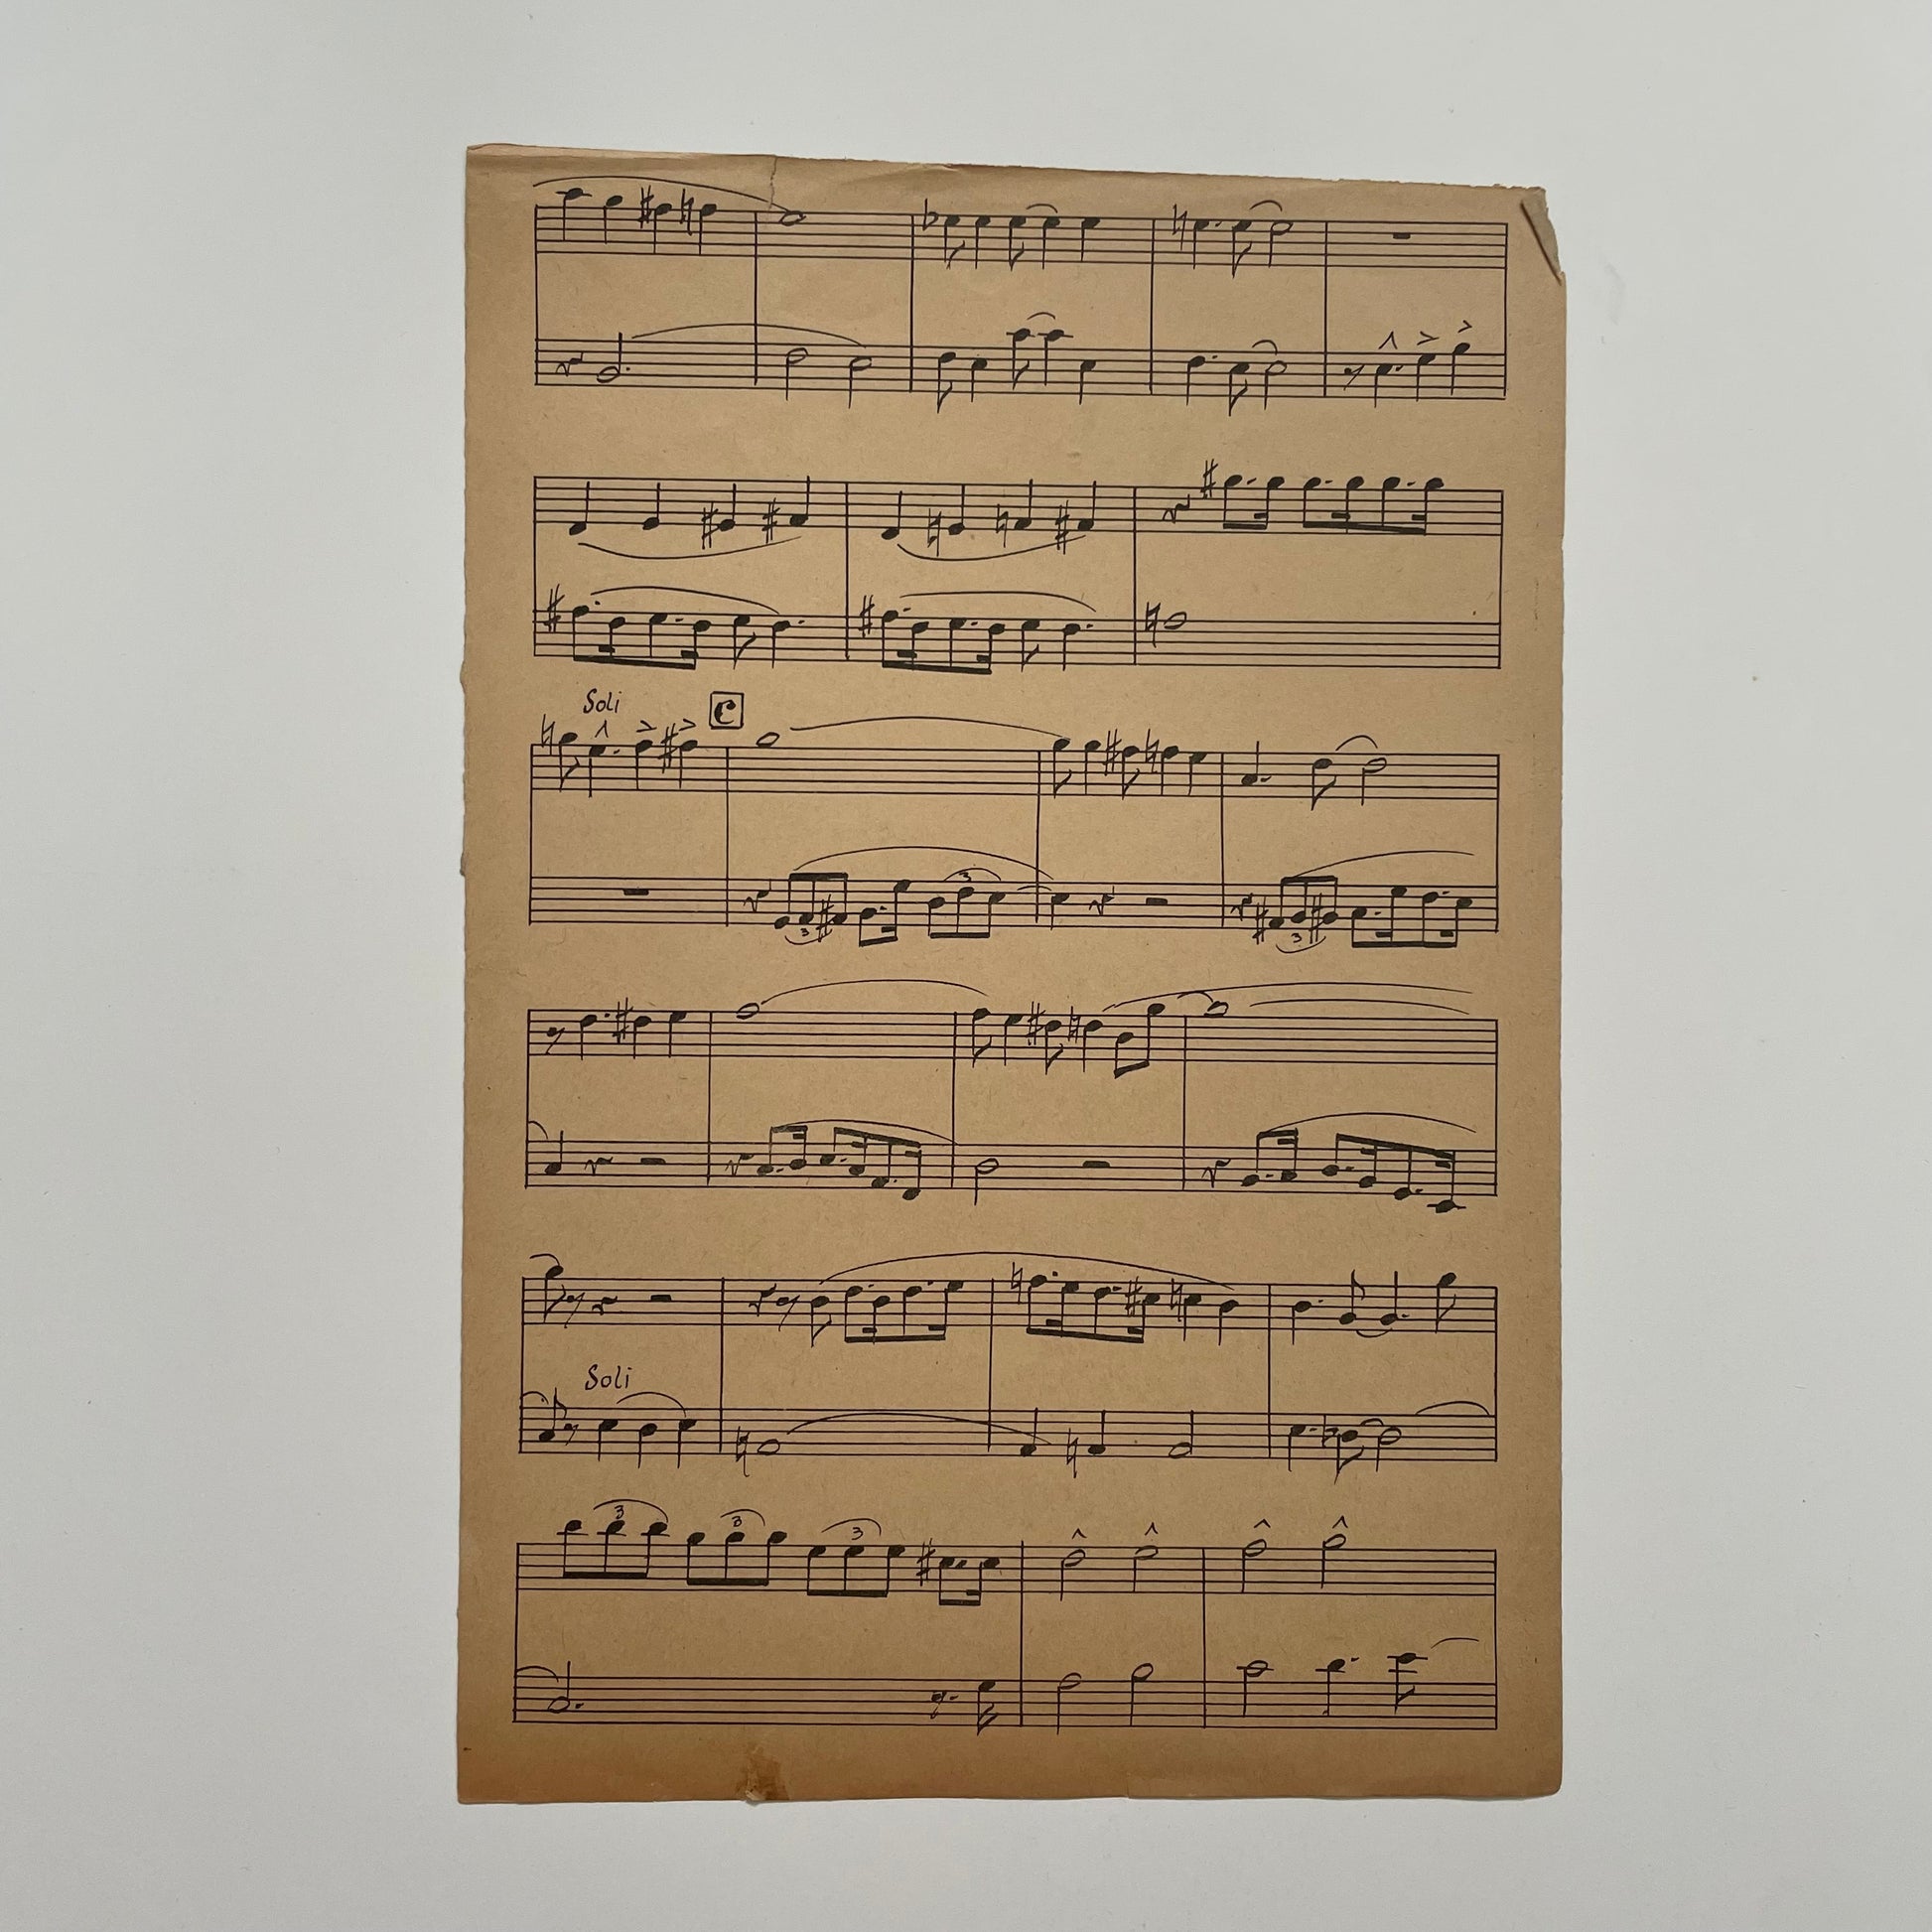 Soli
C
3 3 3
Soli
3 3 3